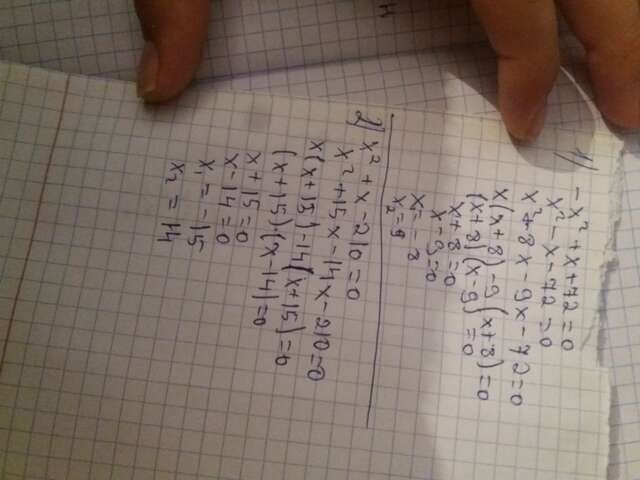 1)
-x²+x+72=0
x²-x-72=0
x²+8x-9x-72=0
x(x+8)-9(x+8)=0
(x+8)(x-9)=0
x+8=0
x-9=0
x=-8
x₂=9
2) x²+x-210=0
x²+15x-14x-210=0
x(x+15)-14(x+15)=0
(x+15)·(x-14)=0
x+15=0
x-14=0
x₁=-15
x₂=14